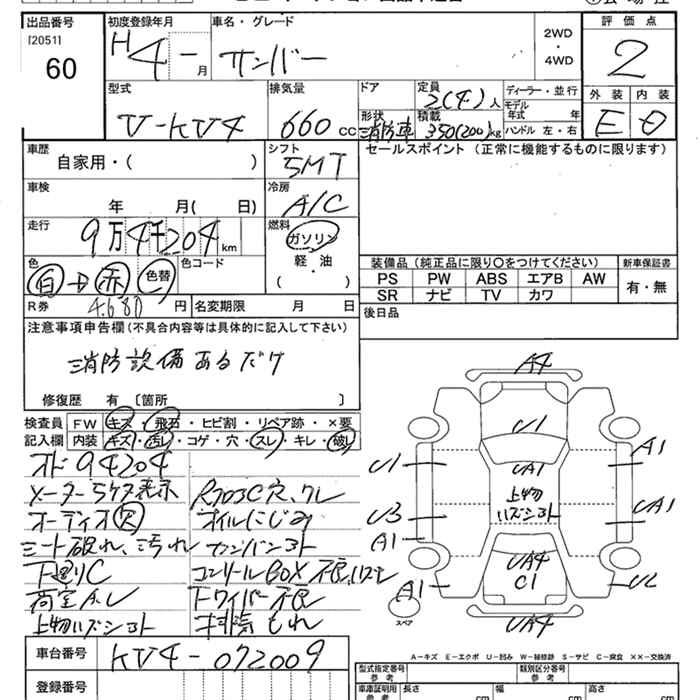 出品番号 初度登録年月 車名・グレード 2WD・4WD 評価点
[2051]
60 H4-月 サンバー 2
型式 排気量 ドア 定員 ディーラー・並行 外装 内装
V-KV4 660cc 2(4)人 モデル年式 年 E D
形状 消防車 積載 350(200)kg ハンドル 左・右
車歴 シフト セールスポイント(正常に機能するものに限ります)
自家用・( ) 5MT
車検 冷房
年 月( 日) A/C
走行 燃料
9万4千204km ガソリン
軽・油
( )
色 色コード 装備品(純正品に限り〇をつけてください) 新車保証書
白→赤 色替 PS PW ABS エアB AW 有・無
SR ナビ TV カワ
R券 4.680円 名変期限 月 日 後日品
注意事項申告欄(不具合内容等は具体的に記入して下さい)
消防設備あるだけ
修復歴 有 〔箇所 〕
検査員 FW キズ・飛石・ヒビ割・リペア跡・×要
記入欄 内装 キズ・汚れ・コゲ・穴・スレ・キレ・破れ
オド94204
メーター5ケタ表示
オーディオ欠 オイルにじみ
シート破れ、汚れ カンバン3ト
下廻りC コントロールBOX不良
荷室A.レ ワイパー不良
上物ハズシ3ト 排気もれ
車台番号 KV4-072009
登録番号
A4
U1
U1 UA1 A1
上物
ハズシ3ト
U3 UA1
A1
UA4
C1 U2
A1
スペア
UA4
A-キズ E-エクボ U-凹み W-補修跡 S-サビ C-腐食 ××-交換済
型式指定番号 参考 類別区分番号 参考
車庫証明用 参考 長さ cm 幅 cm 高さ cm